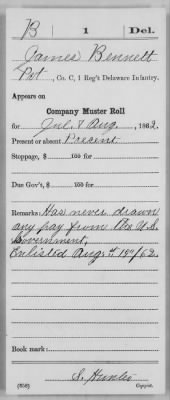 B | 1 | Del.
James Bennett
Pvt, Co. C, 1 Reg't Delaware Infantry.
Appears on
Company Muster Roll
for Jul. & Aug., 1862.
Present or absent Present
Stoppage, $ 100 for
Due Gov't, $ 100 for
Remarks: Has never drawn
any pay from the U.S.
Government,
Enlisted Aug. 19"/62.
Book mark:
S. Hunter
(858) Copyist.